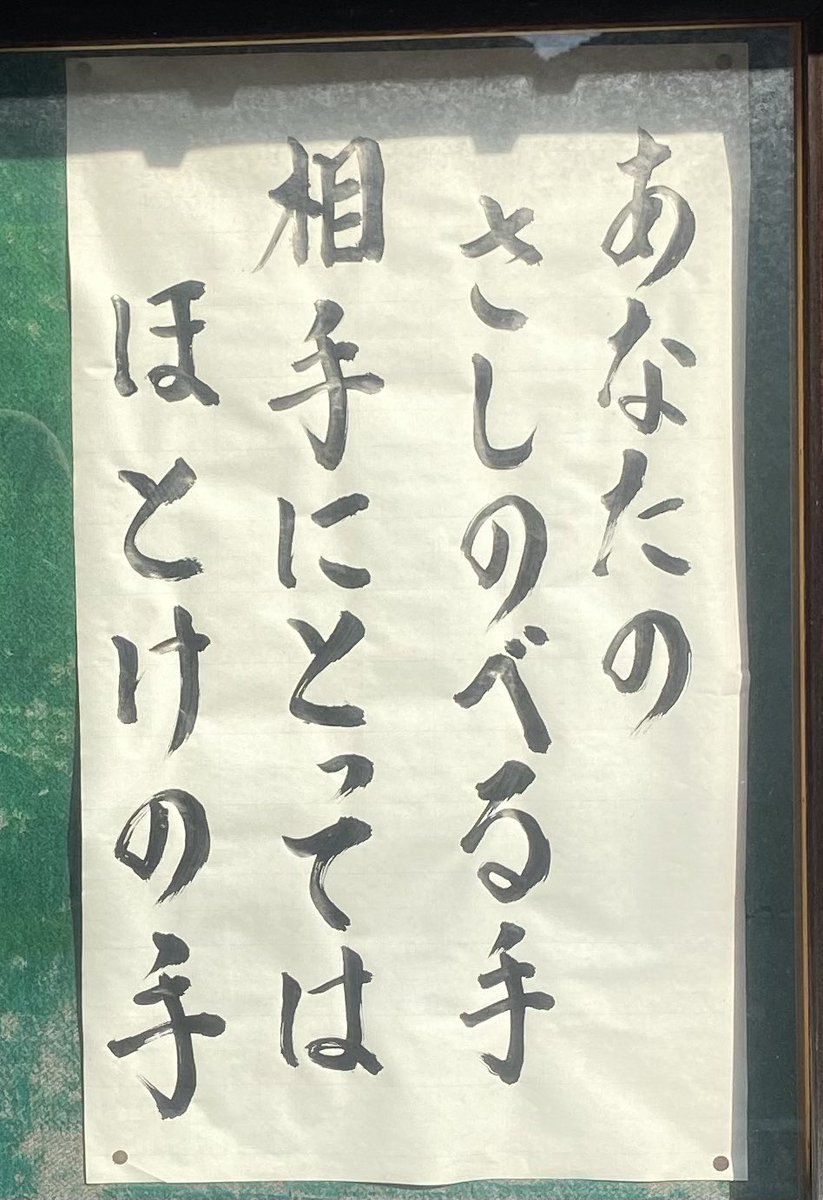 あなたの
さしのべる手
相手にとっては
ほとけの手